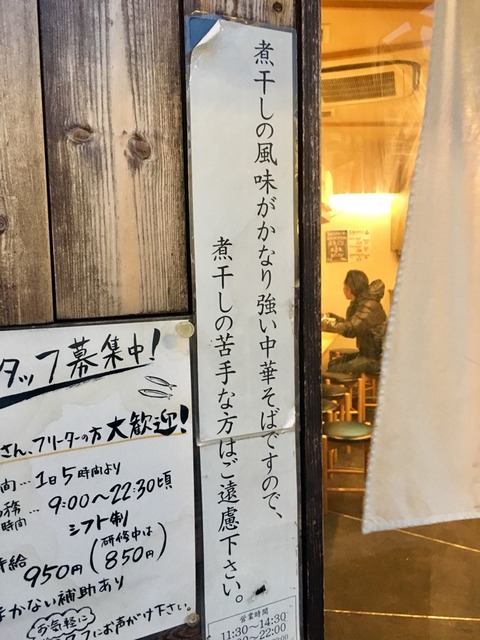 煮干しの風味がかなり強い中華そばですので、
煮干しの苦手な方はご遠慮下さい。
営業時間
11:30〜14:30
タッフ募集中!
さん、フリーターの方大歓迎!
間…1日5時間より
務時間…9:00〜22:30頃
シフト制
給950円(研修中は850円)
かない補助あり
お気軽に
にお声がけ下さい。